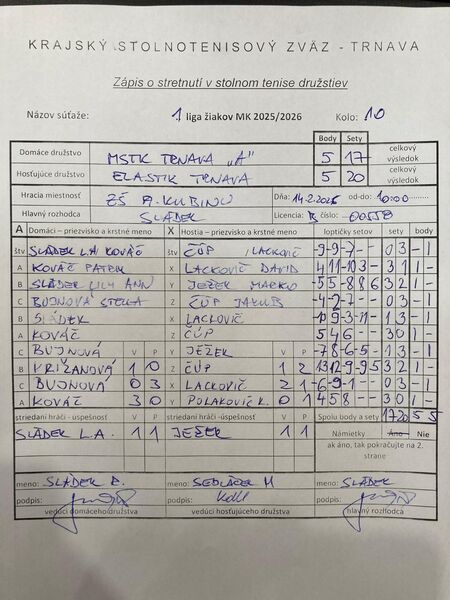 KRAJSKÝ STOLNOTENISOVÝ ZVÄZ - TRNAVA
Zápis o stretnutí v stolnom tenise družstiev
Názov súťaže: 1 liga žiakov MK 2025/2026 Kolo: 10
Body Sety
Domáce družstvo MSTK TRNAVA "A" 5 17 celkový výsledok
Hosťujúce družstvo ELASTIK TRNAVA 5 20 celkový výsledok
Hracia miestnosť ZŠ A. KUBINU Dňa: 14.2.2026 od-do: 10:00
Hlavný rozhodca SLÁDEK Licencia: B číslo: 00558
A Domáci - priezvisko a krstné meno X Hostia - priezvisko a krstné meno loptičky setov sety body
štv SLÁDEK L.A KOVÁČ štv ČÚP / LACKOVIČ -9 -9 -7 - - 0 3 - 1
A KOVÁČ PATRIK X LACKOVIČ DAVID 4 11 -10 3 - 3 1 1 -
B SLÁDEK LILY ANN Y JEŽEK MARKO -5 -5 8 8 6 3 2 1 -
C BUJNOVÁ STELLA Z ČÚP JAKUB -4 -2 -7 - - 0 3 - 1
B SLÁDEK X LACKOVIČ -10 9 -3 -11 - 1 3 - 1
A KOVÁČ Z ČÚP 5 4 6 - - 3 0 1 -
C BUJNOVÁ V P Y JEŽEK V P -7 8 -6 -5 - 1 3 - 1
B KRIŽANOVÁ 1 0 Z ČÚP 1 2 13 12 -9 -9 5 3 2 1 -
C BUJNOVÁ 0 3 X LACKOVIČ 2 1 -6 -9 -1 - - 0 3 - 1
A KOVÁČ 3 0 Y POLAKOVIČ K. 0 1 4 5 8 - - 3 0 1 -
striedaní hráči - uspešnosť V P striedaní hráči - úspešnosť V P Spolu body a sety 17 20 5 5
SLÁDEK L.A. 1 1 JEŽEK 1 1 Námietky Áno - Nie
ak áno, tak pokračujte na 2. strane
meno: SLÁDEK R. meno: SEDLÁČEK M meno: SLÁDEK
podpis: podpis: podpis:
vedúci domáceho družstva vedúci hosťujúceho družstva hlavný rozhodca